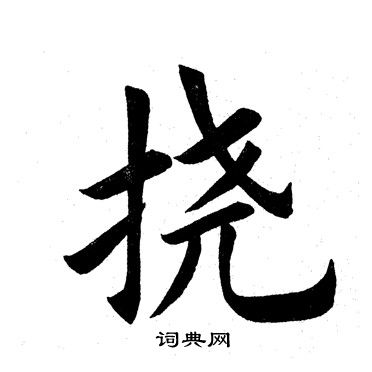 挠
词典网